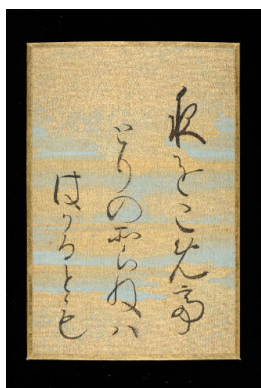 夜をこめて
とりのそらねハ
はかるとも